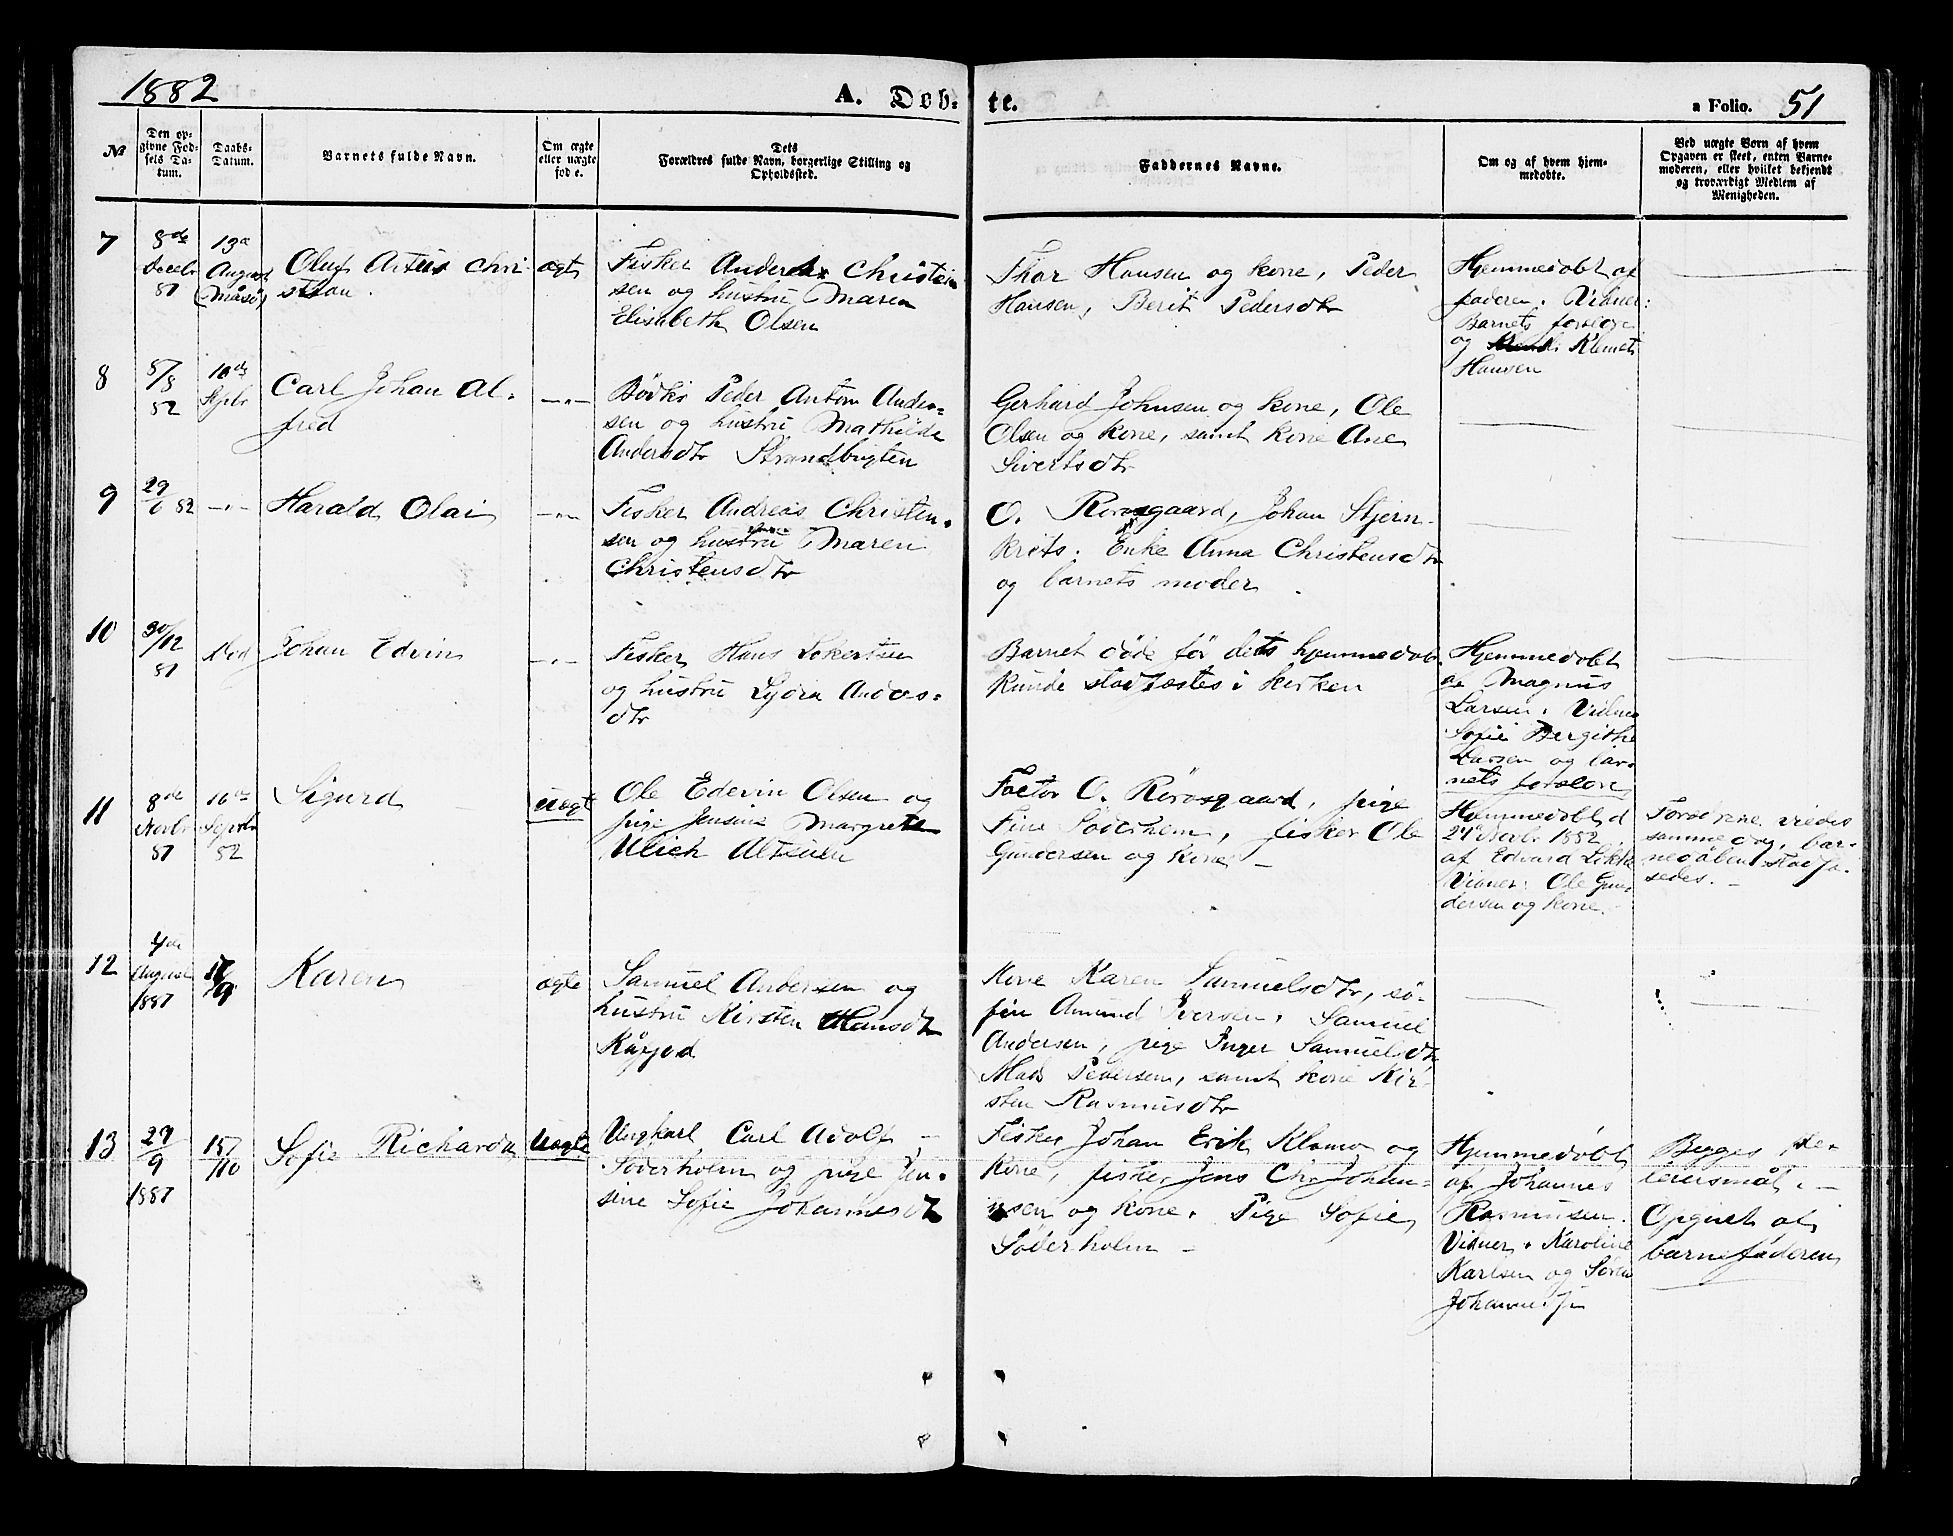 1882
A. Döb-
te.
a Folio. 51
№
Den op-
givne Fød-
sels Da-
tum.
Daabs-
Datum.
Barnets fulde Navn.
Om ægte
eller uægte
fød e.
Dets
Forældres fulde Navn, borgerlige Stilling og
Opholdssted.
Faddernes Navne.
Om og af hvem hjem-
medøbte.
Ved uægte Børn af hvem
Opgaven er skeet, enten Barne-
moderen, eller hvilket bekjendt
og troværdigt Medlem af
Menigheden.
7
81
13de
August
(Måsø)
Oluf Artus Chri-
stian.
ægte
Fisker Christen-
sen og hustru Maren
Elisabeth Olsen
Thor Hansen og kone, Peder
Hansen, Berit Pedersdtr
Hjemmedøbt af
faderen. Vidner:
Barnets forældre
og Klemet
Hansen
8
82
10de
Septbr
Carl Johan Al-
fred
—„—
Peder Anton Ander-
sen og hustru Mathilde
Andersdtr Strandbugten
Gerhard Johnsen og kone, Ole
Olsen og kone, samt kone Ane
Sivertsdtr
9
29/6 82
—„—
Harald Olai
—„—
Fisker Andreas Christen-
sen og hustru Maren
Christensdtr
O. Rørosgaard, Johan Stjern-
Enke Anna Christensdtr
og barnets moder
10
30/12
81
død
Johan Edvin
—„—
Fisker Hans
og hustru Lydia Anders-
dtr
Barnet døde før dets hjemmedåb
kunde stadfæstes i kirken
Hjemmedøbt
af Magnus
Larsen. Vidner
Sofie Bergithe
Larsen og bar-
nets forældre
11
8de
Novbr
81
10de
Septbr
82
Sigurd
uægte
Ole Edevin Olsen og
pige Jensine Margrete
Ulich Altenen
Factor O. Rørosgaard, pige
Fine Söderholm, fisker Ole
Gundersen og kone —
Hjemmedøbt d
24 Novb. 1882
af Edvard
Vidner: Ole Gun-
dersen og kone.
Forældrene viedes
samme dag, bar-
nedåben stadfæ-
stedes. —
12
4de
August
1881
Karen
ægte
Samuel Andersen og
hustru Kirsten Hansdtr
Kåfjord
Kone Karen Samuelsdtr, sø-
Amund Iversen, Samuel
Andersen, pige Inger Samuelsdtr
Mads Pedersen, samt kone Kir-
sten Rasmusdtr
13
29/9
1881
15/10
Sofie Richarda
Uægte
Ungkarl Carl Adolf —
Söderholm og pige Jen-
sine Sofie Johannesdtr
Fisker Johan Erik Klomo og
kone, fisker Jens Chr. Johan-
nsen og kone. Pige Sofie
Söderholm —
Hjemmedøbt
af Johannes
Rasmussen.
Vidner: Karoline
Karlsen og Søren
Begges
leiersmål. —
Opgivet af
barnefaderen